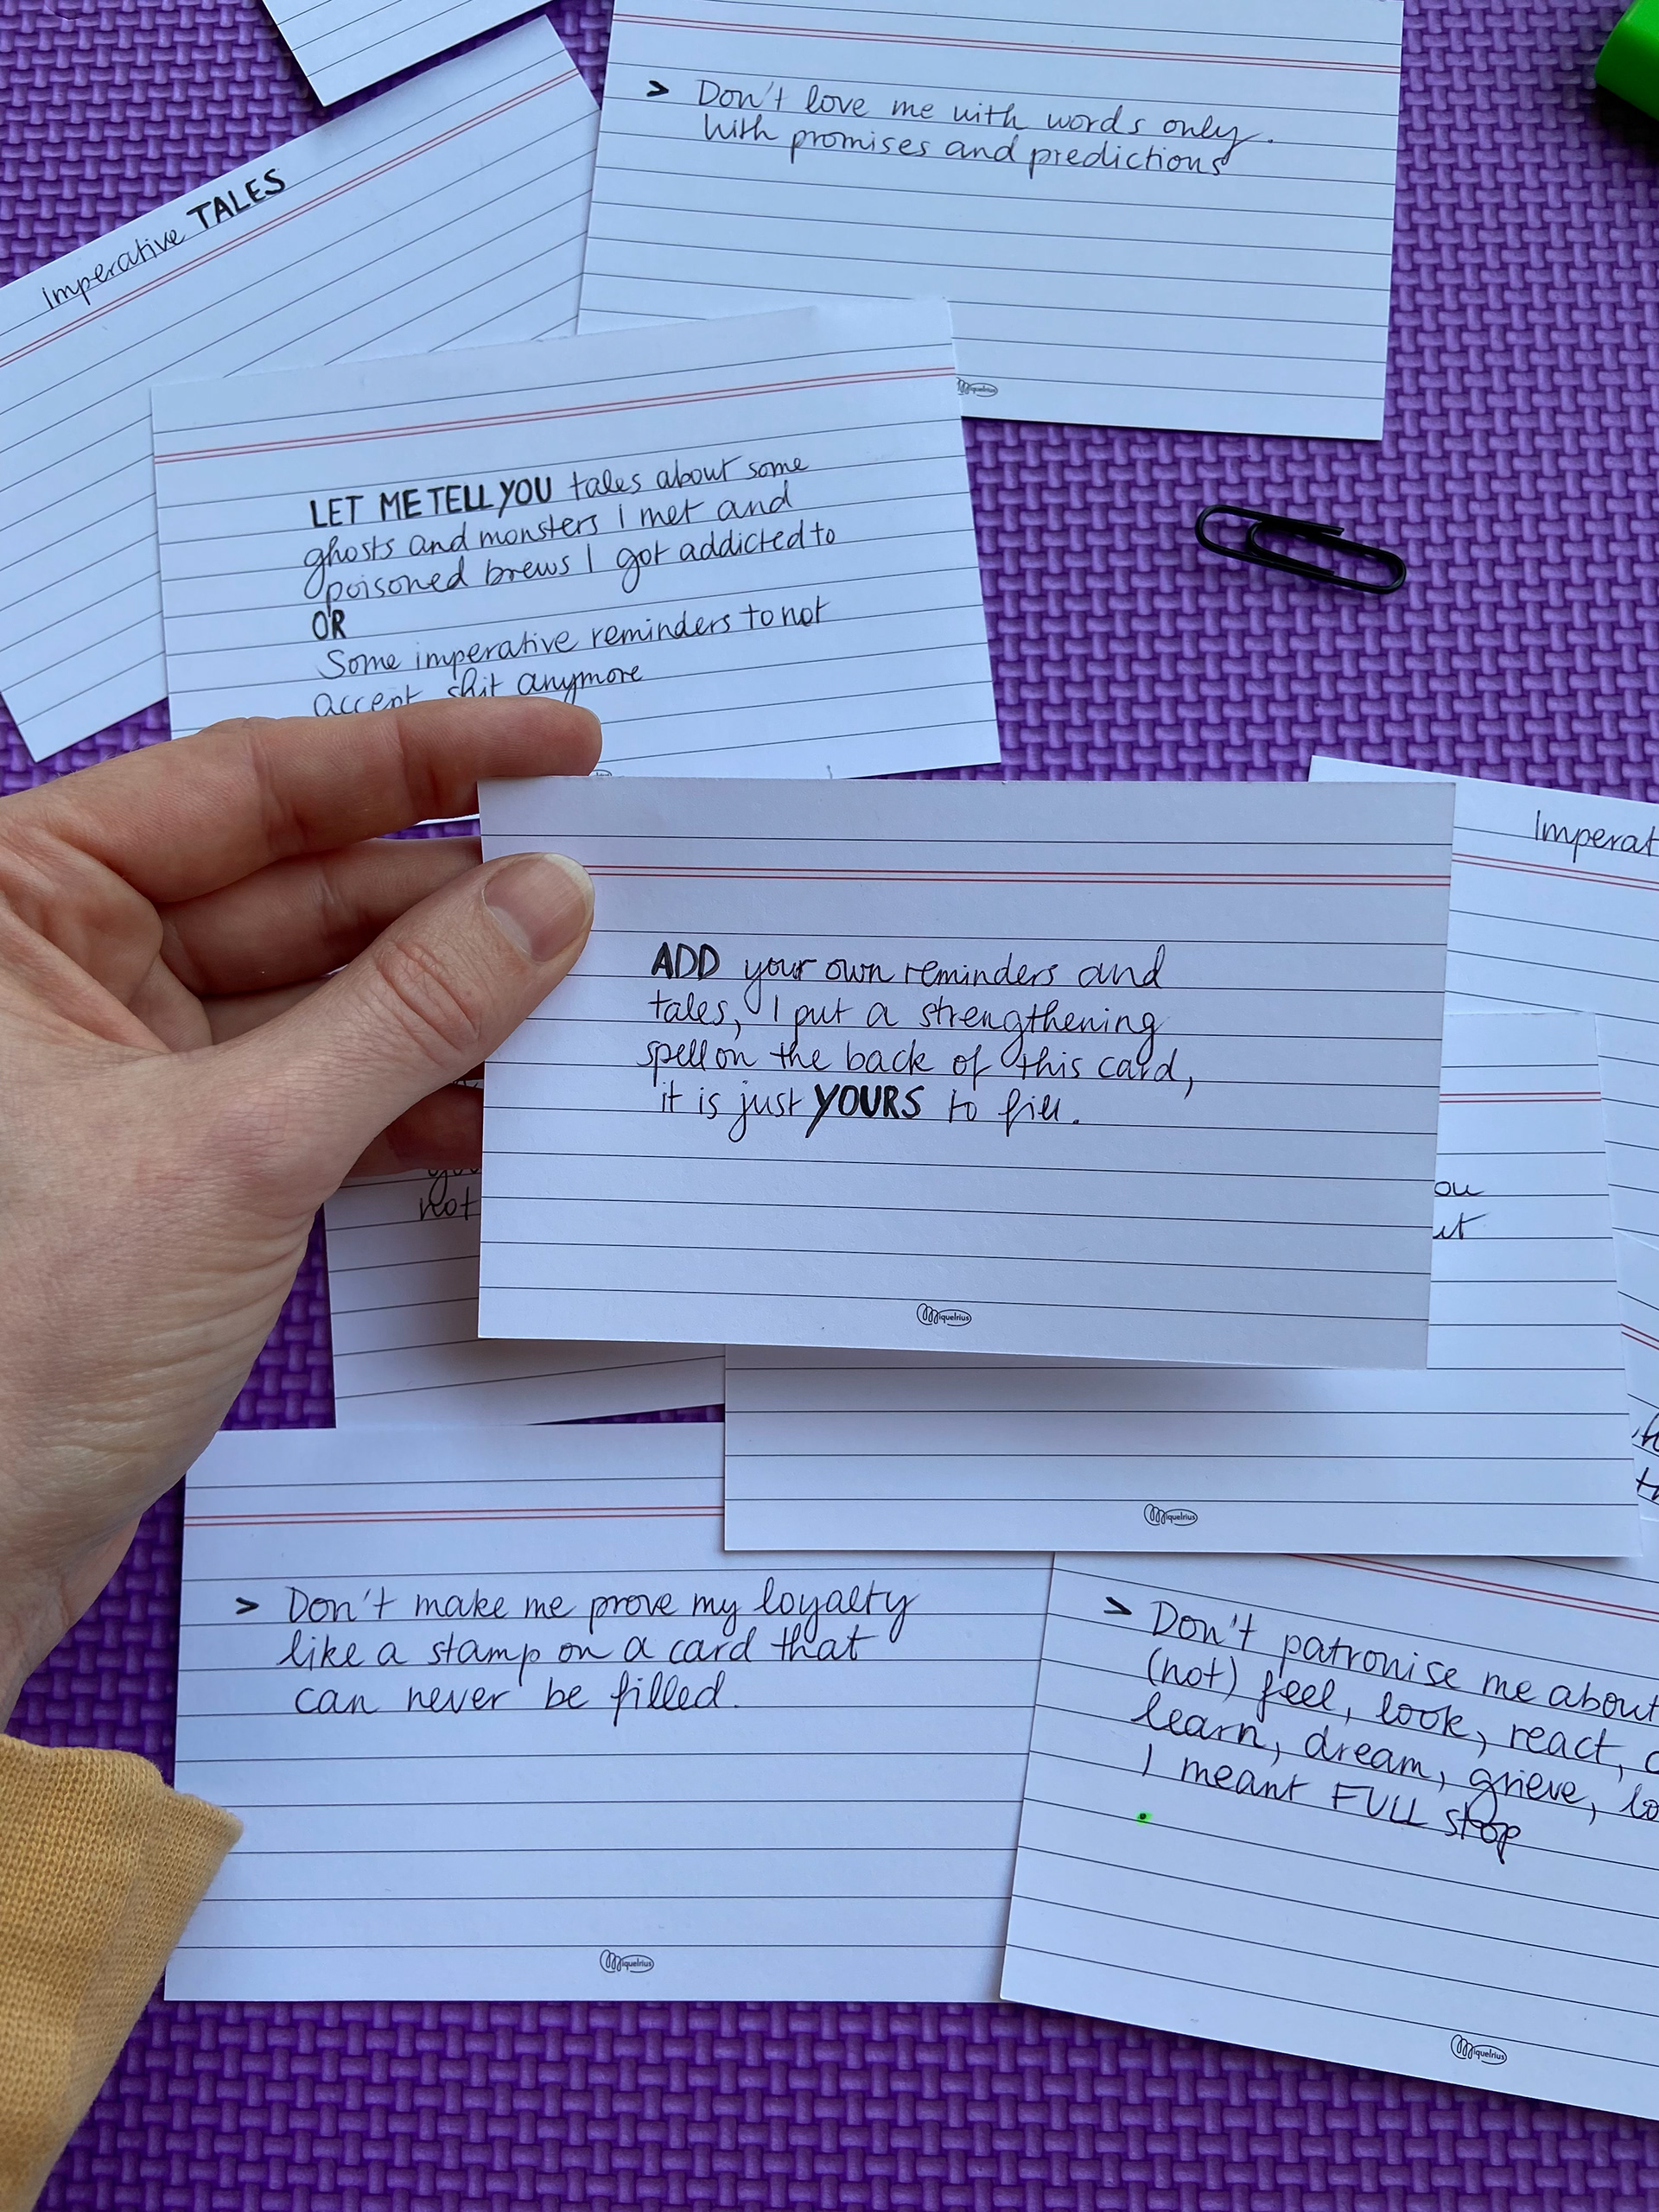 > Don't love me with words only.
With promises and predictions
Imperative TALES
Miquelrius
LET ME TELL YOU tales about some
ghosts and monsters I met and
poisoned brews I got addicted to
OR
Some imperative reminders to not
accept shit anymore
Imperat
ADD your own reminders and
tales, I put a strengthening
spell on the back of this card,
it is just YOURS to fill.
Miquelrius
not
ou
ut
Miquelrius
> Don't make me prove my loyalty
like a stamp on a card that
can never be filled.
Miquelrius
> Don't patronise me about
(not) feel, look, react,
learn, dream, grieve, lo
I meant FULL stop
.
Miquelrius